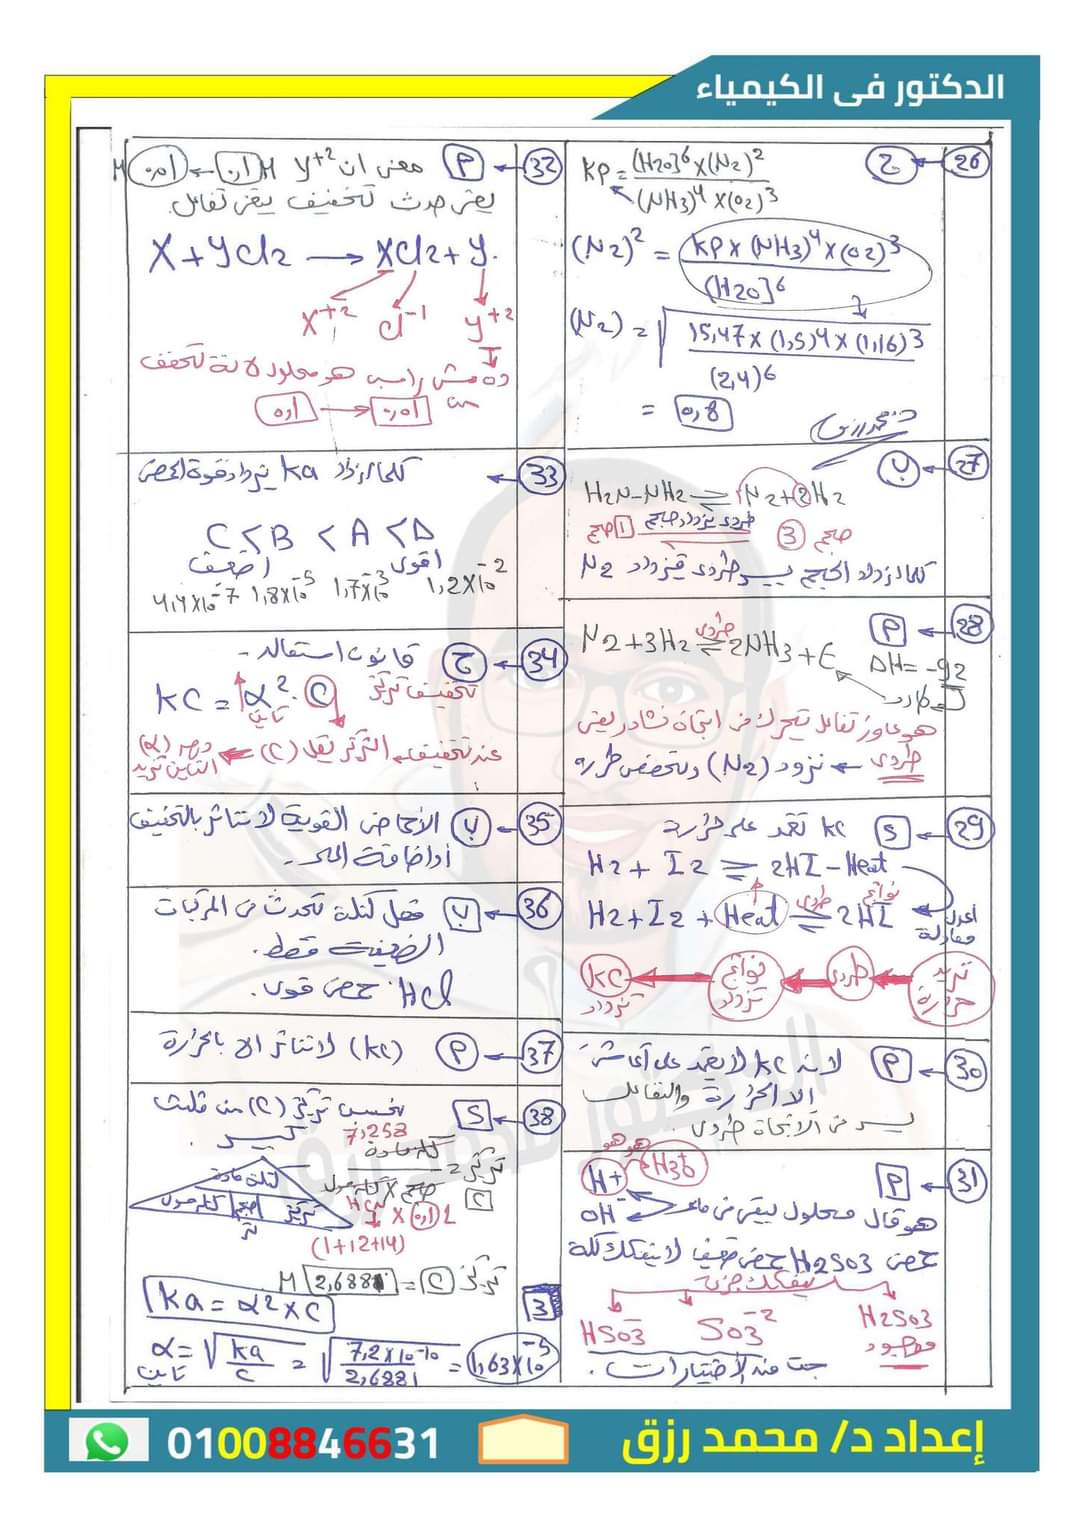 الدكتور فى الكيمياء
26 ← ج
KP = (H2O)6 x (N2)2
(NH3)4 x (O2)3
(N2)2 = KP x (NH3)4 x (O2)3
(H2O)6
(N2) = √ 15,47 x (1,5)4 x (1,16)3
(2,4)6
= 0,8
27 ← ب
H2N-NH2 ⇌ N2 + 2H2
1 حجم
3 حجم
كلما ازداد الحجم يسير طردى فيزداد N2
28 ← P
N2 + 3H2 ⇌ 2NH3 + E
طردى
ΔH = -92
طارد
هو عاوز تفاعل يتحرك فى اتجاه نشادر يعنى
طردى ← نزود (N2) ونخفض حرارة
29 ← S
KC تعتمد على حرارة
H2 + I2 ⇌ 2HI - Heat
H2 + I2 + Heat ⇌ 2HI
طردى
نواتج
أعدل
معادلة
تزيد حرارة
طردى
نواتج تزداد
KC تزداد
30 ← P
لانه KC لا يعتمد على أى شئ
الا الحرارة والتفاعل
يسير فى الاتجاه طردى.
31 ← P
H+
هو هو
H3O+
OH-
هو قال محلول يبقى فى ماء
حمض H2SO3 حمض ضعيف لا يتفكك كله
يتفكك جزئ
HSO3-
SO3-2
H2SO3
موجود
جت منه الأختيارات.
32 ← P
معنى ان Y+2
يعنى حدث تخفيف يبقى تفاعل.
X + YCl2 → XCl2 + Y.
X+2
Cl-1
Y+2
33 ←
كلما ازداد Ka يزداد قوة الحمض
C < B < A < D
أضعف
اقوى
4,4x10-7
1,8x10-5
1,7x10-3
1,2x10-2
34 ← ج
قانون استفالد -
KC = α2 . C
تأين
تخفيف تركيز
عند تخفيف التركيز تقل (C) ← درجة (α)
التأين تزيد
35 ← ب
الأحماض القوية لا تتأثر بالتخفيف
أو اضافة الماء -
36 ← ب
فعل كتلة تحدث فى المركبات
الضعيفة فقط.
HCl حمض قوى.
37 ← P
(KC) لا تتأثر الا بالحرارة
38 ← S
نحسب تركيز (C) من مثلث
كبير.
7,258
تركيز C = كتلة مادة
حجم x كتلة مول
كتلة مادة
تركيز
حجم
كتلة مول
HCN
x 0,1 L
(1+12+14)
تركيز C = 2,6881 M
3
Ka = α2 x C
α = √ Ka
C
= √ 7,2x10-10
2,6881
= 1,63x10-5
تأين
01008846631
إعداد د/ محمد رزق